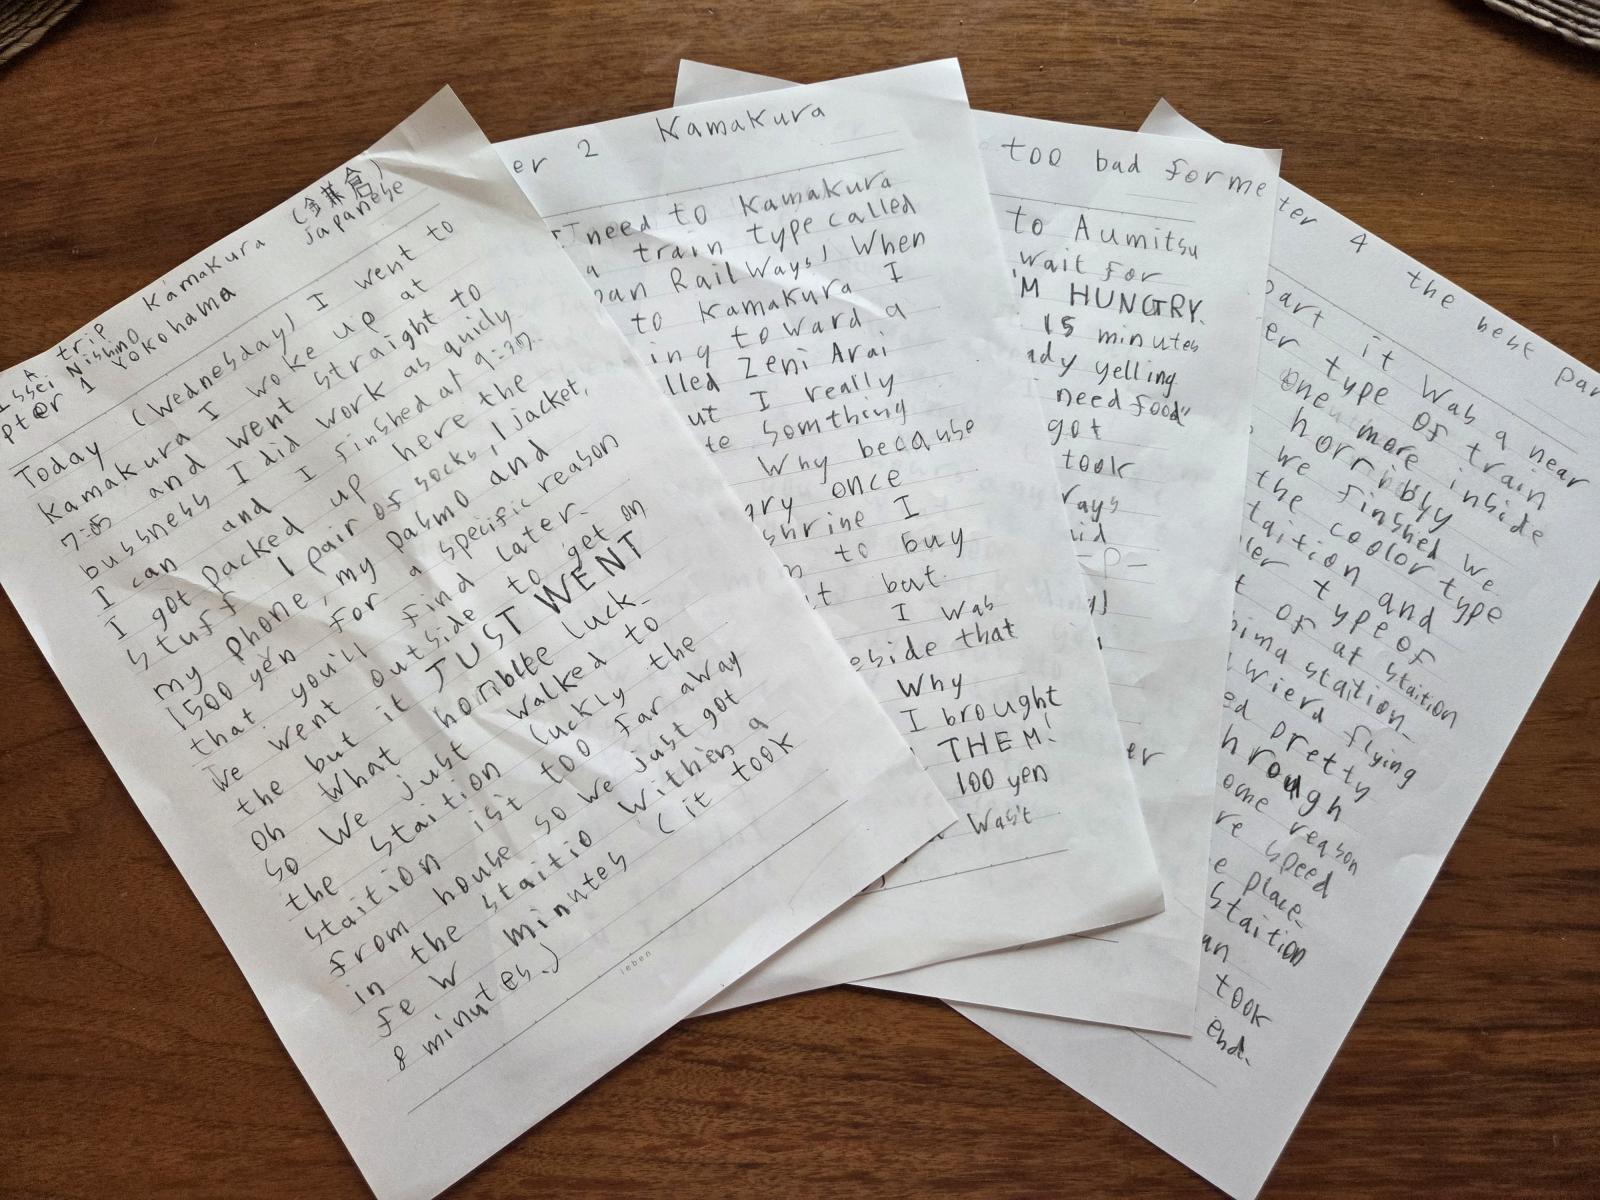 A trip Kamakura (鎌倉)
Issei Nishino Japanese
pter 1 Yokohama
Today (Wednesday) I went to
Kamakura I woke up at
7:05 and went straight to
bussness I did work as quicly
I can and I finshed at 9:37.
I got packed up here the
stuff 1 pair of socks, 1 jacket,
my phone, my pasmo and
1500 yen for a specific reason
that you'll find later.
We went outside to get on
the but it JUST WENT
Oh What horriblee luck.
so We just walked to
the staition luckly the
staition ist too far away
from house so we just got
in the staitio withen a
few minutes (it took
8 minutes.)
leben
er 2 Kamakura
I need to Kamakura
a train type called
pan Rail Ways) When
to Kamakura I
ing toward a
lled Zeni Arai
ut I really
te something
Why because
gry once
shrine I
to buy
it but
I was
eside that
Why
I brought
THEM!
100 yen
Was't
too bad for me
to Aumitsu
wait for
'M HUNGRY.
15 minutes
ady yelling
need food"
got
took
rays
id
-P-
er
ter 4 the best par
part it Was a near
er type of train
one more inside
horribly
we finshed we
the coolor type
taition and
ler type of
t of at staition
ima station-
wierd flying
ed pretty
hrough
ome reason
re speed
e place.
staition
an
took
end.